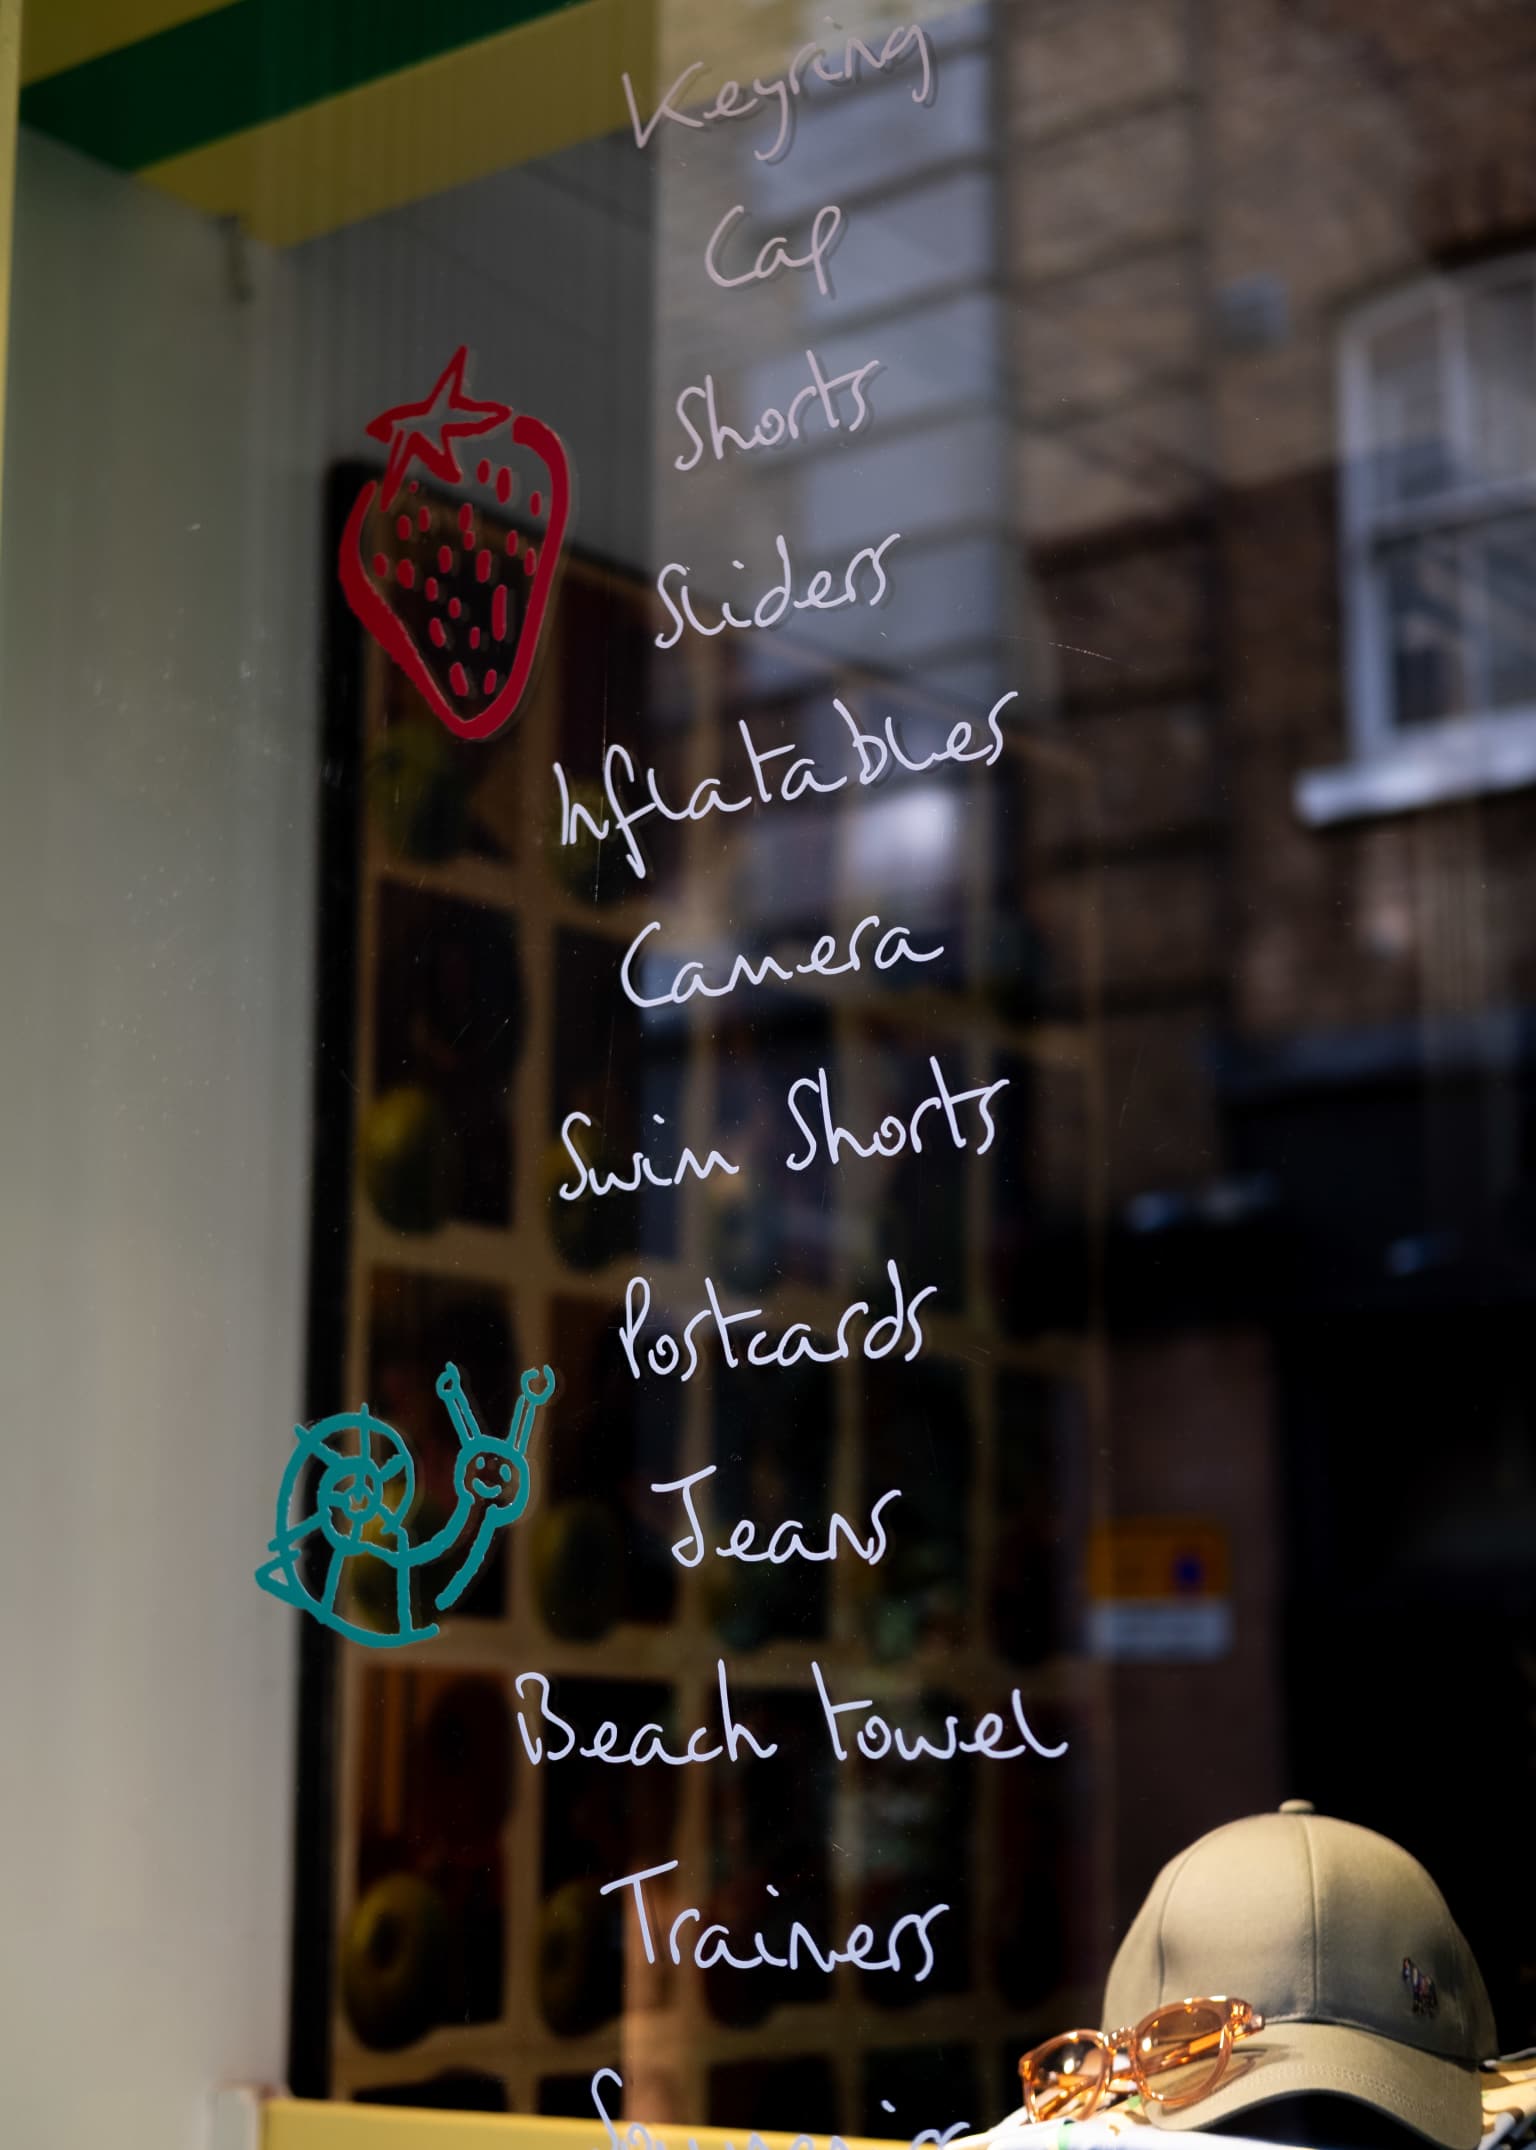 Keyring
Cap
Shorts
Sliders
Inflatables
Camera
Swim Shorts
Postcards
Jeans
Beach towel
Trainers